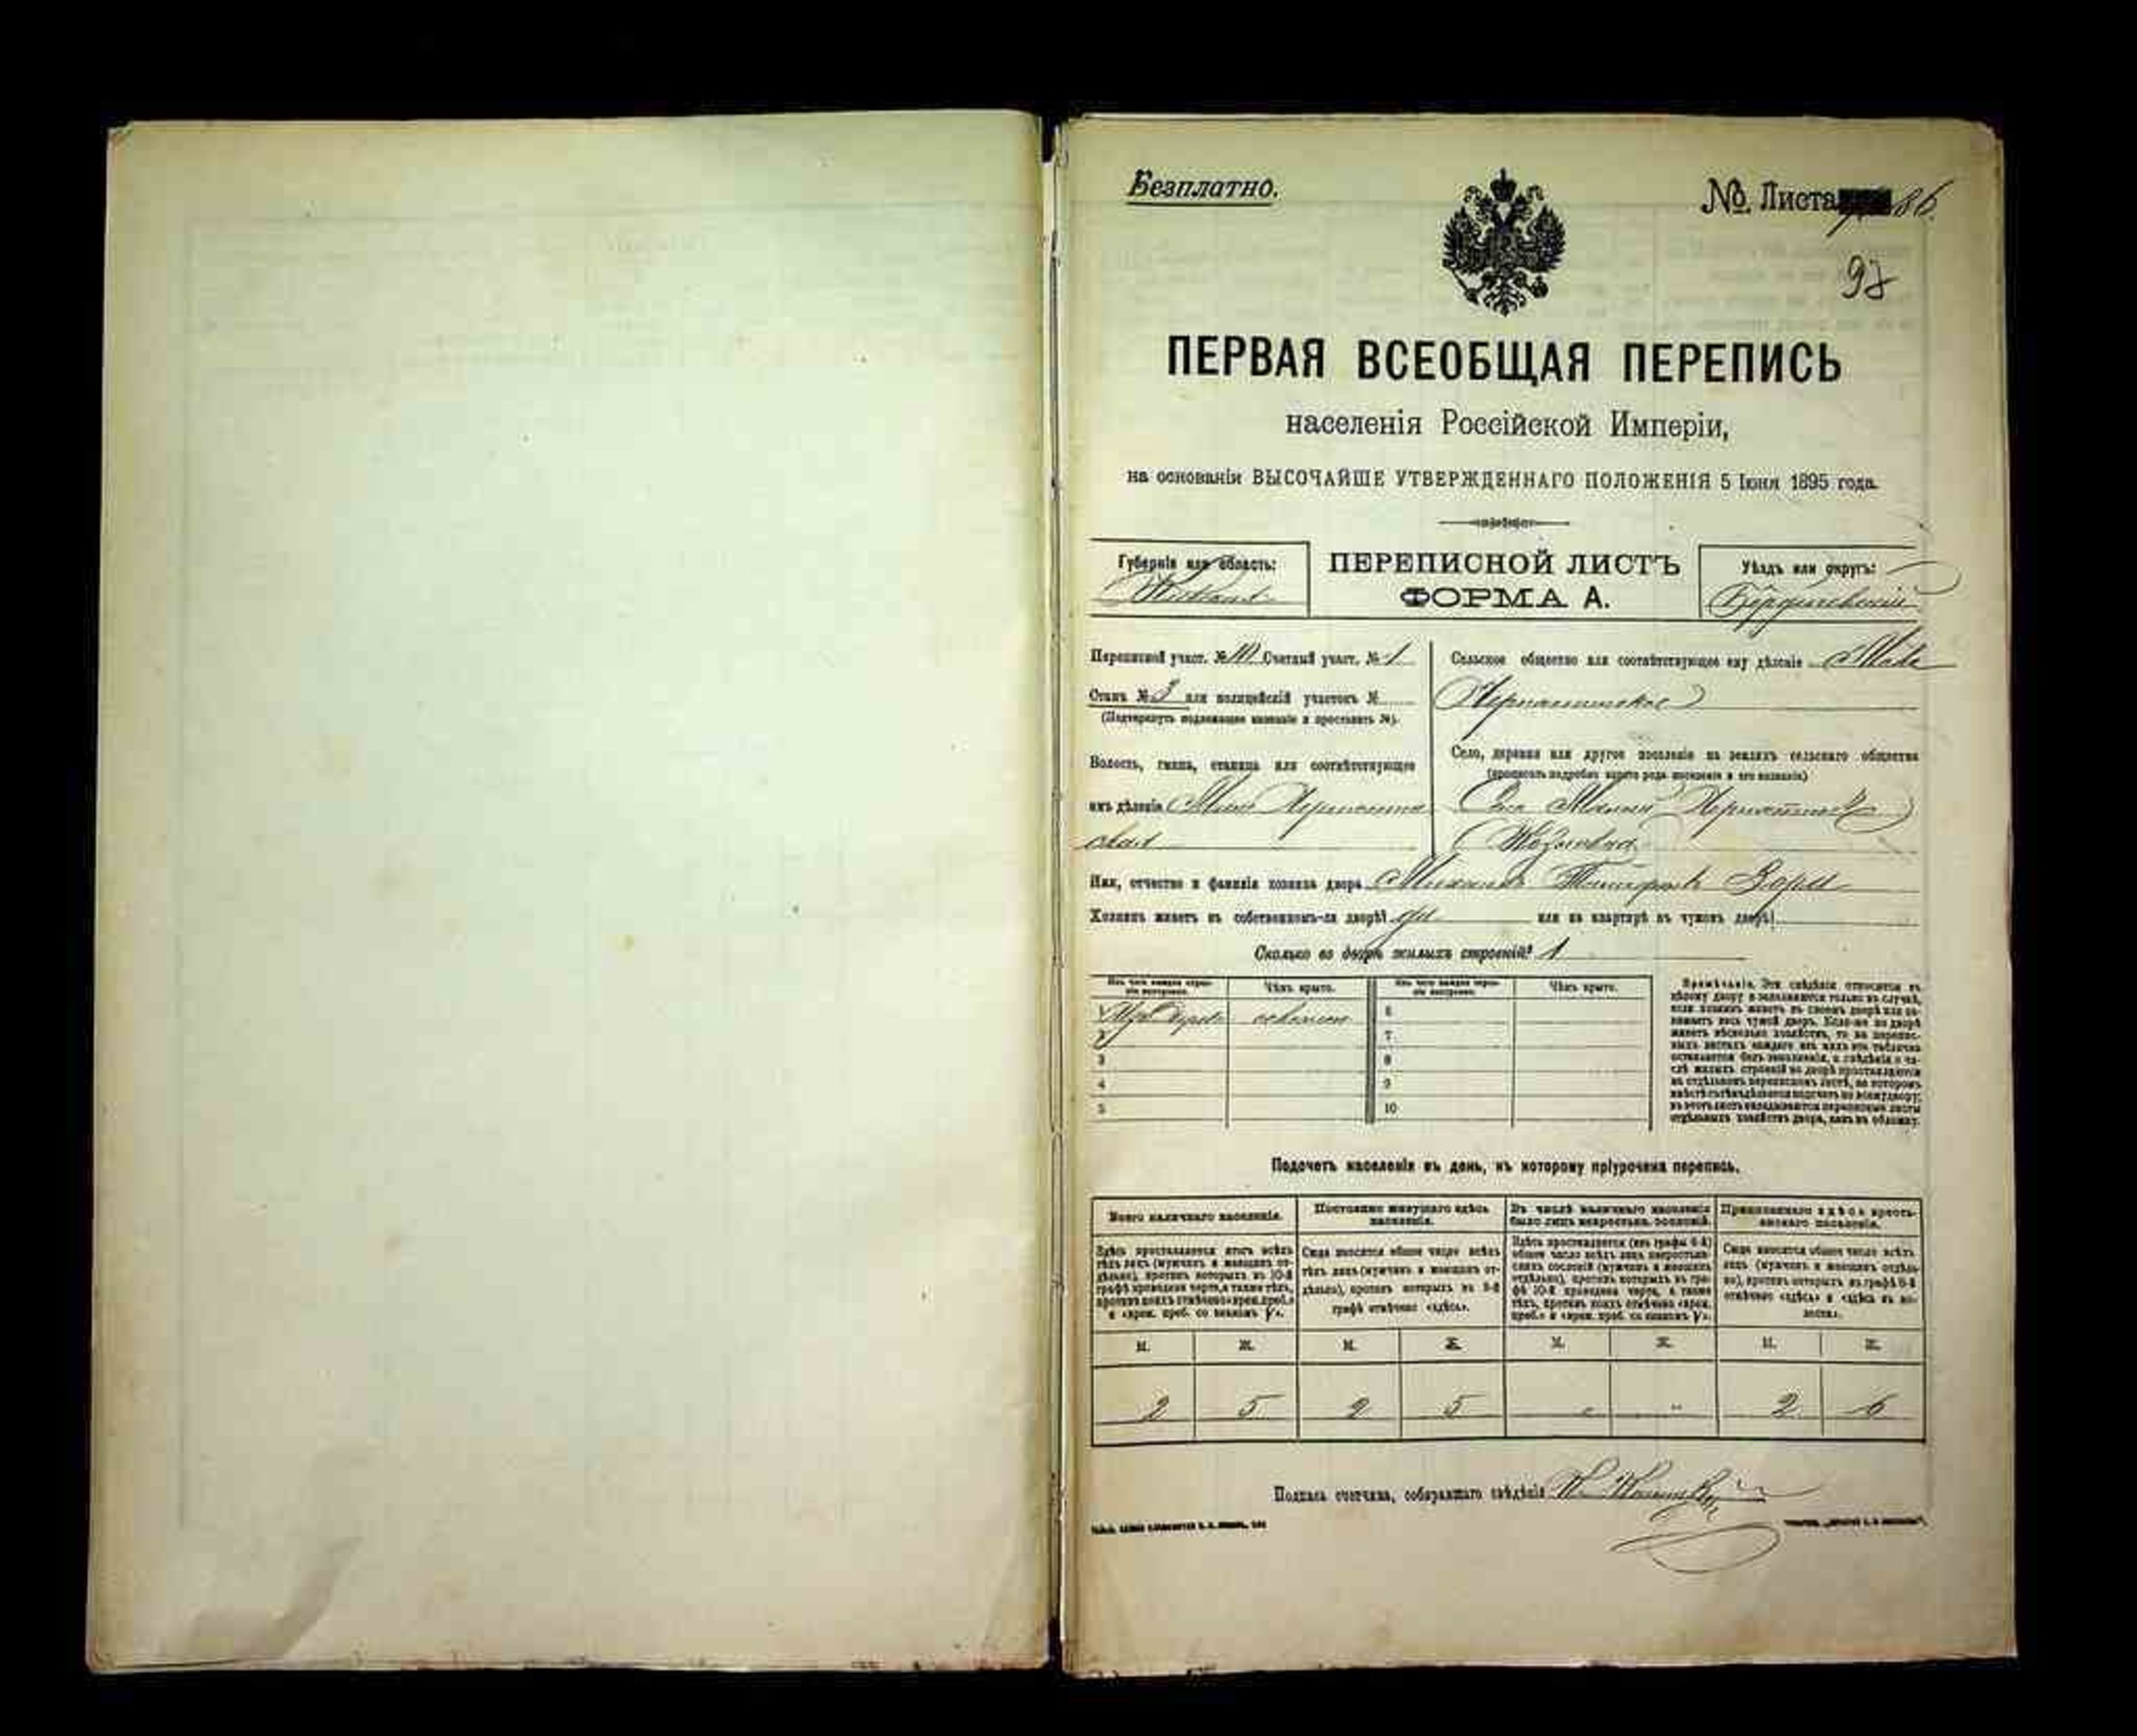 Безплатно.
№ Листа 86.
97
ПЕРВАЯ ВСЕОБЩАЯ ПЕРЕПИСЬ
населенія Россійской Имперіи,
на основаніи ВЫСОЧАЙШЕ УТВЕРЖДЕННАГО ПОЛОЖЕНІЯ 5 Іюня 1895 года.
Губернія или область:
ПЕРЕПИСНОЙ ЛИСТЪ
ФОРМА А.
Уѣздъ или округъ:
Бердичевскій
Переписной участ. № 10 Счетный участ. № 1
Станъ № 3 или полицейскій участокъ №
(Подчеркнуть подлежащее названіе и проставить №).
Волость, гмина, станица или соотвѣтствующее
имъ дѣленіе
ская
Сельское общество или соотвѣтствующее ему дѣленіе Мало
Чернятинское
Село, деревня или другое поселеніе на земляхъ сельскаго общества
(прописать подробно какого рода поселеніе и его названіе)
Село Малый Чернятинъ
Имя, отчество и фамилія хозяина двора
Хозяинъ живетъ въ собственномъ-ли дворѣ? да или на квартирѣ въ чужомъ дворѣ?
Сколько во дворѣ жилыхъ строеній? 1
Изъ чего каждое строеніе построено.
Чѣмъ крыто.
Изъ чего каждое строеніе построено.
Чѣмъ крыто.
1 Изъ дерева соломою 6
2 7
3 8
4 9
5 10
Примѣчаніе. Эти свѣдѣнія относятся къ
цѣлому двору и заполняются только въ случаѣ,
если хозяинъ живетъ въ своемъ дворѣ или за-
нимаетъ весь чужой дворъ. Если-же во дворѣ
живетъ нѣсколько хозяйствъ, то на перепис-
ныхъ листахъ каждаго изъ нихъ эта табличка
оставляется безъ заполненія, а свѣдѣнія о чи-
слѣ жилыхъ строеній во дворѣ проставляются
на отдѣльномъ переписномъ листѣ, на которомъ
Подсчетъ населенія въ день, къ которому пріурочена перепись.
Всего наличнаго населенія.
Постоянно живущаго здѣсь населенія.
Въ числѣ наличнаго населенія было лицъ некрестьян. сословій.
Приписаннаго здѣсь кресть-янскаго населенія.
Здѣсь проставляется итогъ всѣхъ
тѣхъ лицъ (мужчинъ и женщинъ от-
дѣльно), противъ которыхъ въ 10-й
графѣ проведена черта, а также тѣхъ,
противъ коихъ отмѣчено «врем. преб.»
и «врем. преб. со знакомъ V».
Сюда вносится общее число всѣхъ
тѣхъ лицъ (мужчинъ и женщинъ от-
дѣльно), противъ которыхъ въ 9-й
графѣ отмѣчено «здѣсь».
Здѣсь проставляется (изъ графы 4-й)
общее число всѣхъ лицъ некрестьян-
скихъ сословій (мужчинъ и женщинъ
отдѣльно), противъ которыхъ въ гра-
фѣ 10-й проведена черта, а также
тѣхъ, противъ коихъ отмѣчено «врем.
преб.» и «врем. преб. со знакомъ V».
Сюда вносится общее число всѣхъ
лицъ (мужчинъ и женщинъ отдѣль-
но), противъ которыхъ въ графѣ 8-й
отмѣчено «здѣсь» и «здѣсь въ во-
лости».
М. Ж. М. Ж. М. Ж. М. Ж.
2 5 2 5 " " 2 6
Подпись счетчика, собиравшаго свѣдѣнія